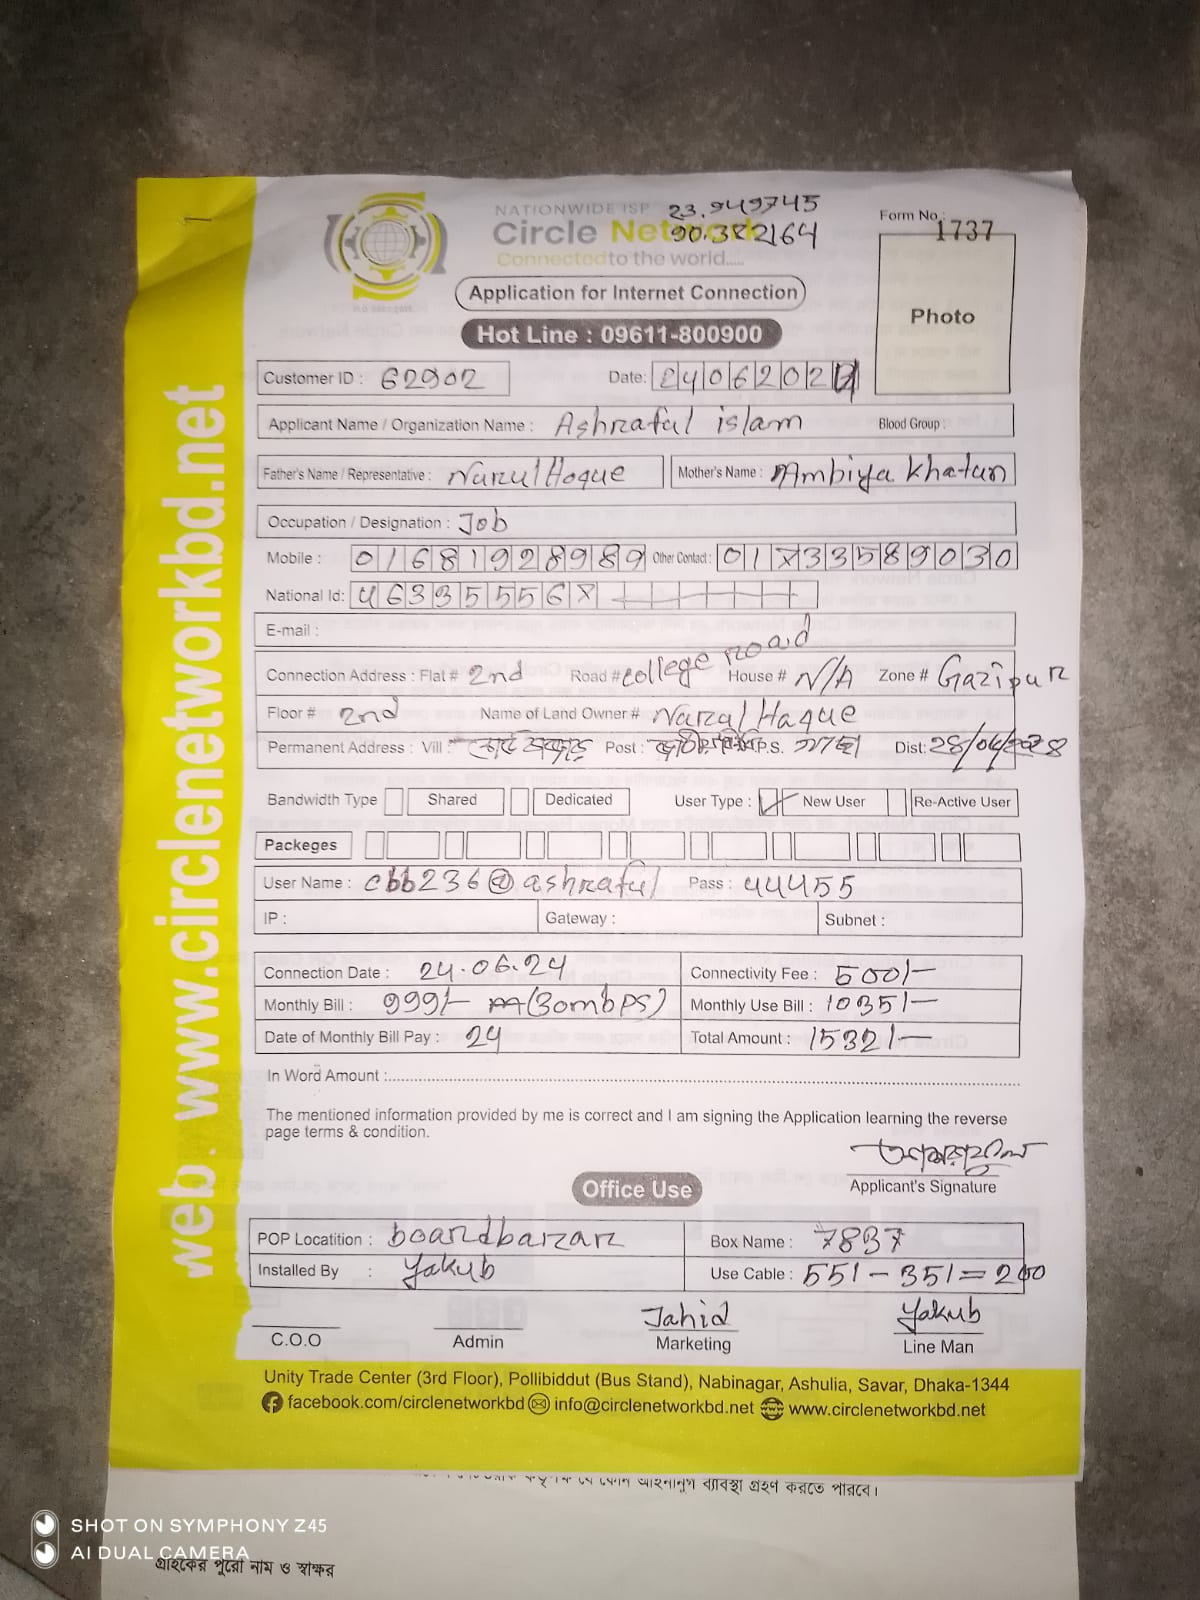 NATIONWIDE ISP 23.949745
Circle Network 90.382164
Connected to the world.....
Form No.: 1737
Photo
Application for Internet Connection
Hot Line : 09611-800900
Customer ID : 62902 Date: 2406202
Applicant Name / Organization Name : Ashraful islam Blood Group :
Father's Name / Representative : Nurul Hoque Mother's Name : Ambiya Khatun
Occupation / Designation : Job
Mobile : 01681928989 Other Contact : 01733589030
National Id: 463355567
E-mail :
Connection Address : Flat # 2nd Road # college road House # N/A Zone # Gazipur
Floor # 2nd Name of Land Owner # Nurul Haque
Permanent Address : Vill : Post : P.S. গাছা Dist:
Bandwidth Type Shared Dedicated User Type : New User Re-Active User
Packeges
User Name : cbb236@ashraful Pass : 44455
IP : Gateway : Subnet :
Connection Date : 24.06.24 Connectivity Fee : 500/-
Monthly Bill : 999/- (30mbps) Monthly Use Bill : 1035/-
Date of Monthly Bill Pay : 24 Total Amount : 1532/-
In Word Amount :
The mentioned information provided by me is correct and I am signing the Application learning the reverse
page terms & condition.
Applicant's Signature
Office Use
POP Locatition : boardbazar Box Name : 7837
Installed By : Yakub Use Cable : 551 - 351 = 200
Jahid Yakub
C.O.O Admin Marketing Line Man
Unity Trade Center (3rd Floor), Pollibiddut (Bus Stand), Nabinagar, Ashulia, Savar, Dhaka-1344
facebook.com/circlenetworkbd info@circlenetworkbd.net www.circlenetworkbd.net
web. www.circlenetworkbd.net
যে কোন আইনানুগ ব্যাবস্থা গ্রহণ করতে পারবে।
SHOT ON SYMPHONY Z45
AI DUAL CAMERA
গ্রাহকের পুরো নাম ও স্বাক্ষর